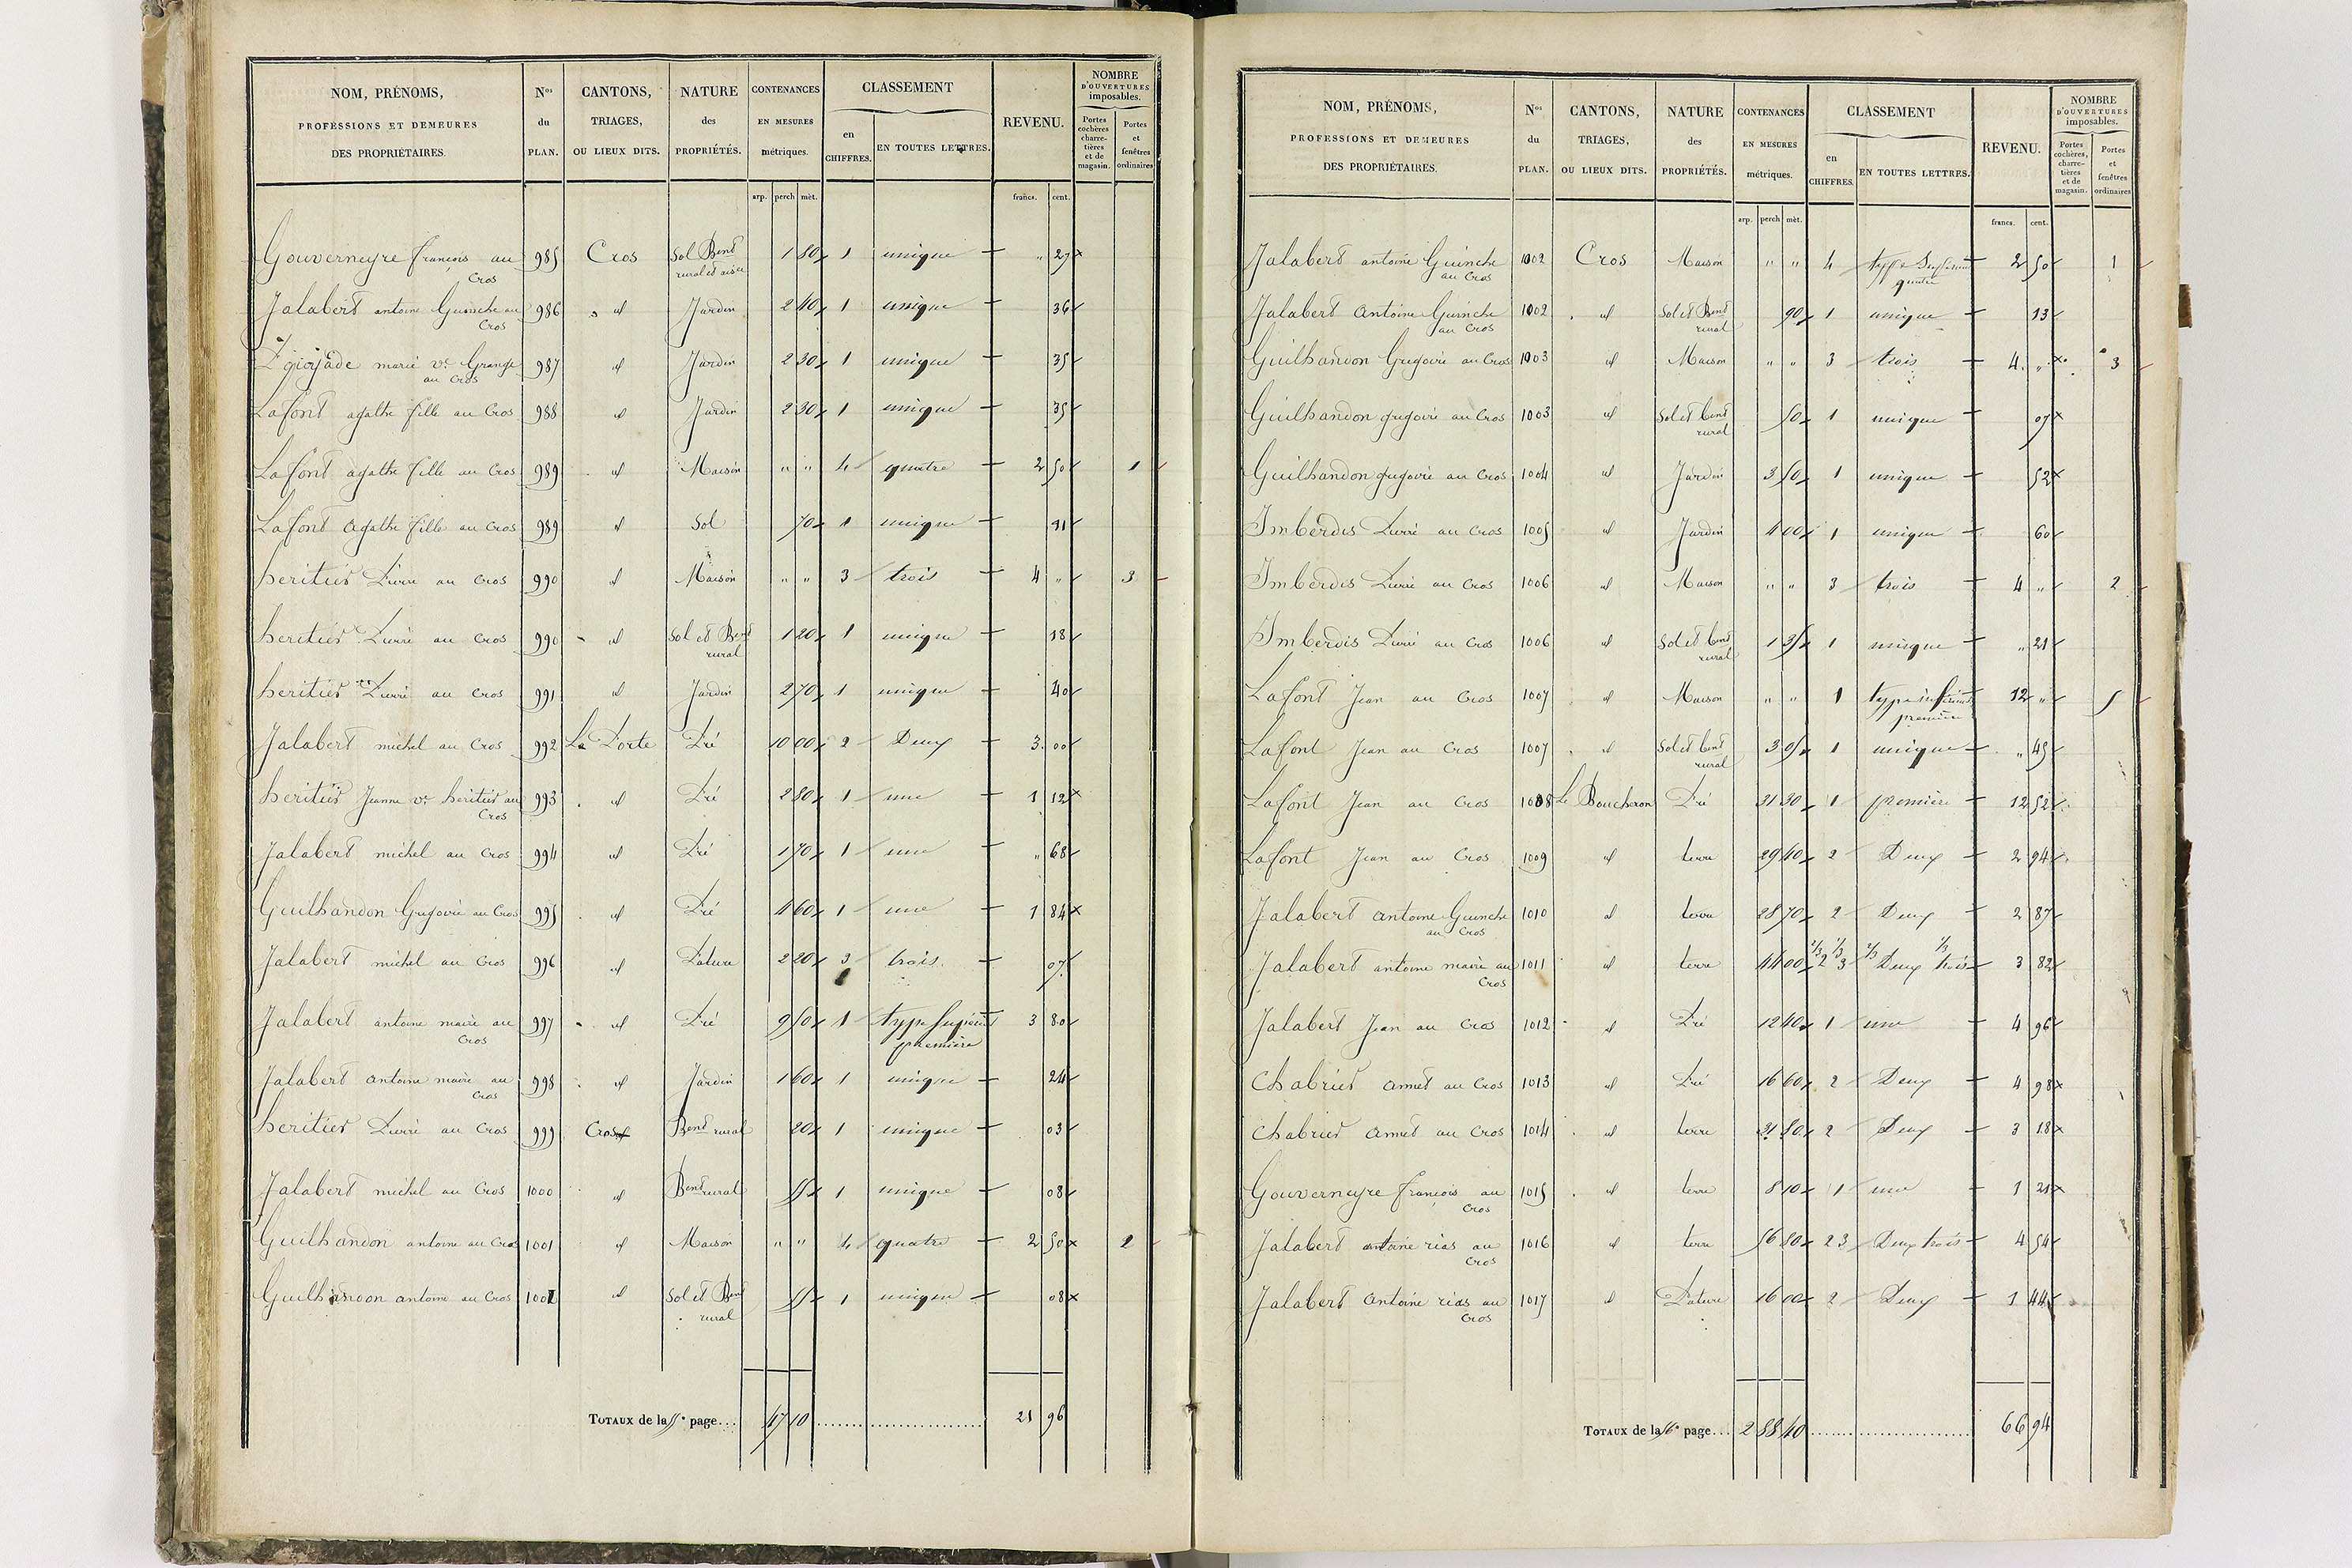 NOM, PRÉNOMS, PROFESSIONS ET DEMEURES DES PROPRIÉTAIRES. Nos du PLAN. CANTONS, TRIAGES, OU LIEUX DITS. NATURE des PROPRIÉTÉS. CONTENANCES EN MESURES métriques. CLASSEMENT en CHIFFRES. EN TOUTES LETTRES. REVENU. NOMBRE D'OUVERTURES imposables. Portes cochères charretières et de magasin. Portes et fenêtres ordinaires
arp. perch mèt. francs. cent.
Gouverneyre françois au Cros 985 Cros Sol Bent rural et aisa 1 80 1 unique " 27
Jalabert antoine Guinche au Cros 986 id Jardin 2 40 1 unique 36
marie ve Grange au Cros 987 id Jardin 2 30 1 unique 35
Lafont agathe fille au Cros 988 id Jardin 2 30 1 unique 35
Lafont agathe fille au Cros 989 id Maison " " 4 quatre 2 50 1
Lafont agathe fille au Cros 989 id Sol 70 1 unique 11
heritier Pierre au Cros 990 id Maison " " 3 trois 4 " 3
heritier Pierre au Cros 990 id Sol et Bent rural 1 20 1 unique 18
heritier Pierre au Cros 991 id Jardin 2 70 1 unique 40
Jalabert michel au Cros 992 La Porte Pré 10 00 2 Deux 3 00
heritier Jeanne ve heritier au Cros 993 id Pré 2 80 1 une 1 12
Jalabert michel au Cros 994 id Pré 1 70 1 une " 68
Guilhandon Gregoire au Cros 995 id Pré 4 60 1 une 1 84
Jalabert michel au Cros 996 id Pature 2 20 3 trois 07
Jalabert antoine maire au Cros 997 id Pré 9 50 1 type supérieur première 3 80
Jalabert antoine maire au Cros 998 id Jardin 1 60 1 unique 24
heritier Pierre au Cros 999 Cros Bent rural 20 1 unique 03
Jalabert michel au Cros 1000 id Bent rural 55 1 unique 08
Guilhandon antoine au Cros 1001 id Maison " " 4 quatre 2 50 2
Guilhandon antoine au Cros 1001 id Sol et Bent rural 55 1 unique 08
TOTAUX de la 55e page... 47 10 21 96
NOM, PRÉNOMS, PROFESSIONS ET DEMEURES DES PROPRIÉTAIRES. Nos du PLAN. CANTONS, TRIAGES, OU LIEUX DITS. NATURE des PROPRIÉTÉS. CONTENANCES EN MESURES métriques. CLASSEMENT en CHIFFRES. EN TOUTES LETTRES. REVENU. NOMBRE D'OUVERTURES imposables. Portes cochères, charretières et de magasin. Portes et fenêtres ordinaires
arp. perch mèt. francs. cent.
Jalabert antoine Guinche au Cros 1002 Cros Maison " " 4 quatre 2 50 1
Jalabert antoine Guinche au Cros 1002 id Sol et Bent rural 90 1 unique 13
Guilhandon Gregoire au Cros 1003 id Maison " " 3 trois 4 " 3
Guilhandon gregoire au Cros 1003 id Sol et bent rural 50 1 unique 07
Guilhandon gregoire au Cros 1004 id Jardin 3 50 1 unique 52
Imberdis Pierre au Cros 1005 id Jardin 4 00 1 unique 60
Imberdis Pierre au Cros 1006 id Maison " " 3 trois 4 " 2
Imberdis Pierre au Cros 1006 id Sol et bent rural 1 35 1 unique " 21
Lafont Jean au Cros 1007 id Maison " " 1 type inférieur première 12 " 5
Lafont Jean au Cros 1007 id Sol et bent rural 3 05 1 unique " 45
Lafont Jean au Cros 1008 Le Boucheron Pré 31 30 1 première 12 52
Lafont Jean au Cros 1009 id terre 29 40 2 Deux 2 94
Jalabert antoine Guinche au Cros 1010 id terre 28 70 2 Deux 2 87
Jalabert antoine maire au Cros 1011 id terre 44 00 2/3 2 1/3 3 2/3 Deux 1/3 trois 3 82
Jalabert Jean au Cros 1012 id Pré 12 40 1 une 4 96
Chabrier amet au Cros 1013 id Pré 16 60 2 Deux 4 98
Chabrier amet au Cros 1014 id terre 31 80 2 Deux 3 18
Gouverneyre françois au Cros 1015 id terre 8 10 1 une 1 21
Jalabert antoine rias au Cros 1016 id terre 56 80 2 3 Deux trois 4 54
Jalabert antoine rias au Cros 1017 id Pature 16 00 2 Deux 1 44
TOTAUX de la 56e page... 2 88 40 66 94